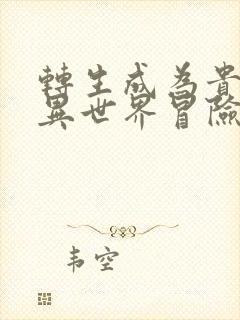 轉生成為貴
異世界冒險
韦空